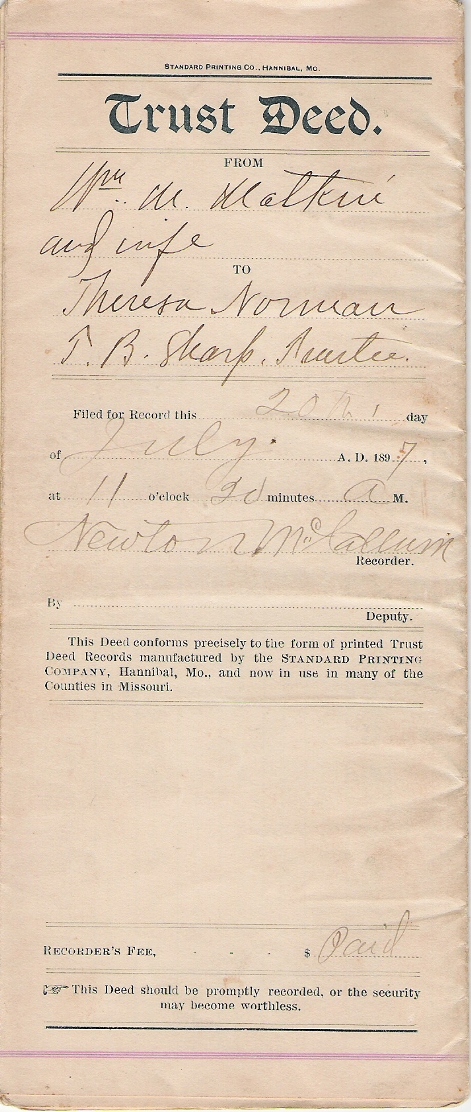 STANDARD PRINTING CO., HANNIBAL, MO.
Trust Deed.
FROM
Wm. M.
and wife
TO
Theresa Norman
T. B. Sharp. Trustee.
Filed for Record this 20th day
of July. A. D. 1897,
at 11 o'clock 20 minutes A M.
Newton McCallum
Recorder.
By
Deputy.
This Deed conforms precisely to the form of printed Trust
Deed Records manufactured by the STANDARD PRINTING
COMPANY, Hannibal, Mo., and now in use in many of the
Counties in Missouri.
RECORDER'S FEE, - - - $ Paid
☞ This Deed should be promptly recorded, or the security
may become worthless.